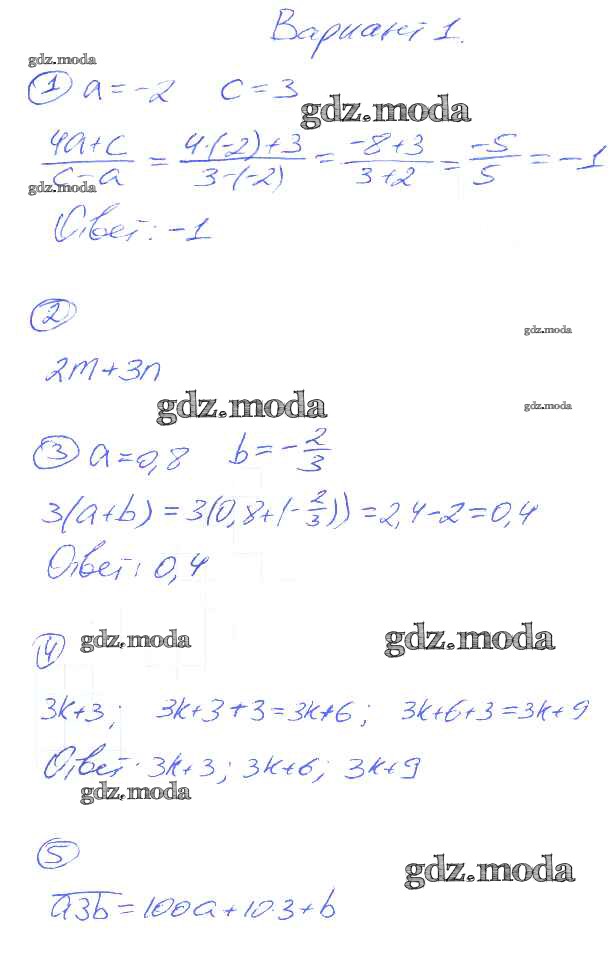 Вариант 1.
gdz.moda
① a = -2 c = 3
gdz.moda
(4a+c)/(c-a) = (4·(-2)+3)/(3-(-2)) = (-8+3)/(3+2) = (-5)/5 = -1
gdz.moda
Ответ: -1
②
gdz.moda
2m+3n
gdz.moda gdz.moda
③ a=0,8 b=-2/3
3(a+b) = 3(0,8+(-2/3)) = 2,4-2 = 0,4
Ответ: 0,4
④ gdz.moda gdz.moda
3k+3; 3k+3+3=3k+6; 3k+6+3=3k+9
Ответ: 3k+3; 3k+6; 3k+9
gdz.moda
⑤
gdz.moda
a̅3̅b̅ = 100a+10·3+b